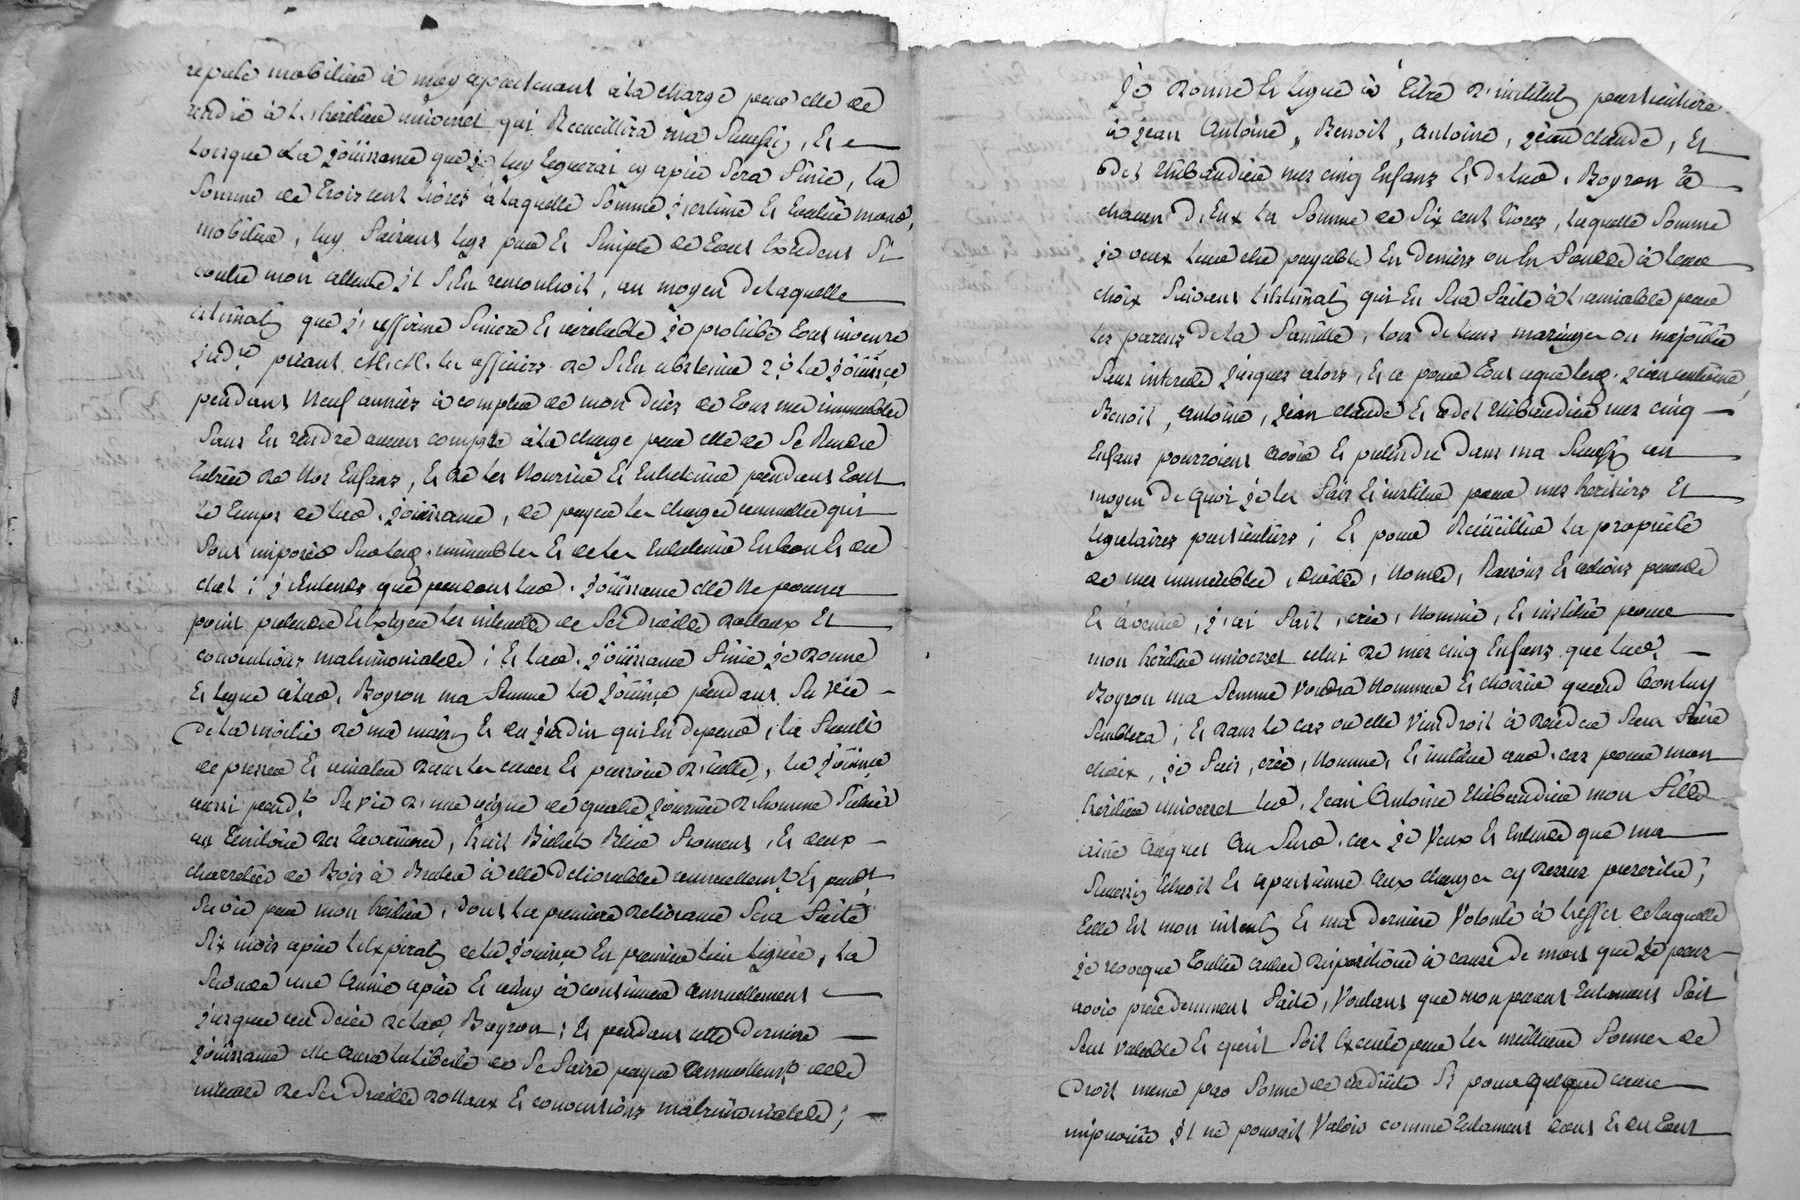 réputé mobiliere à moy appartenant à la charge pour elle de
rendre à l'héritier universel qui Recueillira ma Succession, Et
Lorsque la joüissance que je luy leguerai cy après Sera finie, la
Somme de Trois cent livres à laquelle Somme j'estime Et évalue mond.
mobilier, luy faisant legs pur Et Simple de Tout l'excedent Si
contre mon attente il S'En rencontroit, au moyen de laquelle
estimaon que j'affirme Sincere Et véritable je prohibe tout inventre
judre priant M.M. les officiers de S'En abstenir 2° La joüissce
pendant Neuf années à compter de mon decès de Tous mes immeubles
Sans En rendre aucun compte à la charge pour elle de Se Rendre
tutrice de Nos Enfans, Et de les Nourrir Et Entretenir pendant tout
le temps de lad. joüissance, de payer les charges annuelles qui
Sont imposées Sur lesd. immeubles Et de les Entretenir En bon Et du
état ; j'Entends que pendant lad. joüissance elle Ne pourra
point pretendre Et Exiger les interets de Ses Droits dottaux Et
conventions matrimoniales ; Et lad. joüissance finie je donne
Et legue à lad. Boyron ma femme la joüissce pendant Sa vie
de la moitié de ma maison Et du jardin qui En depend, la faculté
de presser Et cuver dans les cuves Et pressoir d'icelle, la joüissce
aussi pendt Sa vie d'une vigne de quatre journées d'homme Située
au Territoire des , huit Bichets Bled froment, Et deux
charretées de Bois à Bruler à elle delivrables annuellemt Et pendt
Sa vie par mon héritier, dont la premiere delivrance Sera faite
Six mois après l'expiraon de la joüissce En premier lieu leguée, la
Seconde une Année après Et ainsy à continuer annuellement
jusques au décès de lad. Boyron ; Et pendant cette derniere
joüissance elle aura la liberté de Se faire payer annuellemt des
interets de Ses Droits dottaux Et conventions matrimoniales ;
Je donne Et legue à Titre d'institution particuliere
à jean Antoine, Benoit, Antoine, jean claude, Et
odet Thibaudier mes cinq Enfans Et de lad. Boyron à
chacun d'Eux la Somme de Six cent livres, laquelle Somme
je veux leur être payable En deniers ou En fonds à leur
choix Suivant l'estimaon qui En Sera faite à l'amiable par
les parens de la famille, lors de leurs mariages ou majorités
Sans interets jusques alors, Et ce pour Tout ce que lesd. jean antoine
Benoit, Antoine, jean claude Et odet Thibaudier mes cinq
Enfans pourroient avoir Et prétendre dans ma Succession au
moyen de quoi je les fais Et institue pour mes héritiers Et
legataires particuliers ; Et pour Recüeillir la propriété
de mes immeubles, droits, Noms, Raisons Et actions presents
Et à venir, j'ai fait, créé, Nommé, Et institué pour
mon héritier universel celui de mes cinq Enfans que lad.
Boyron ma femme voudra Nommer Et choisir quand bon luy
Semblera ; Et dans le cas où elle viendroit à deceder Sans faire
choix, je fais, crée, Nomme, Et institue aud. cas pour mon
héritier universel led. jean Antoine Thibaudier mon fils
ainé auquel Au Susd. cas je Veux Et Entends que ma
Succession Echoit Et apartienne aux charges cy dessus prescrites ;
Telle Est mon intention Et ma derniere Volonté à l'effet de laquelle
je revoque Toutes autres dispositions à cause de mort que je peux
avoir précédemment faites, Voulant que mon présent testament Soit
Seul valable Et qu'il Soit Executé par les meilleures formes de
Droit meme par forme de codicile Si pour quelque cause
imprévüe il ne pouvoit Valoir comme testament dans Et en tout